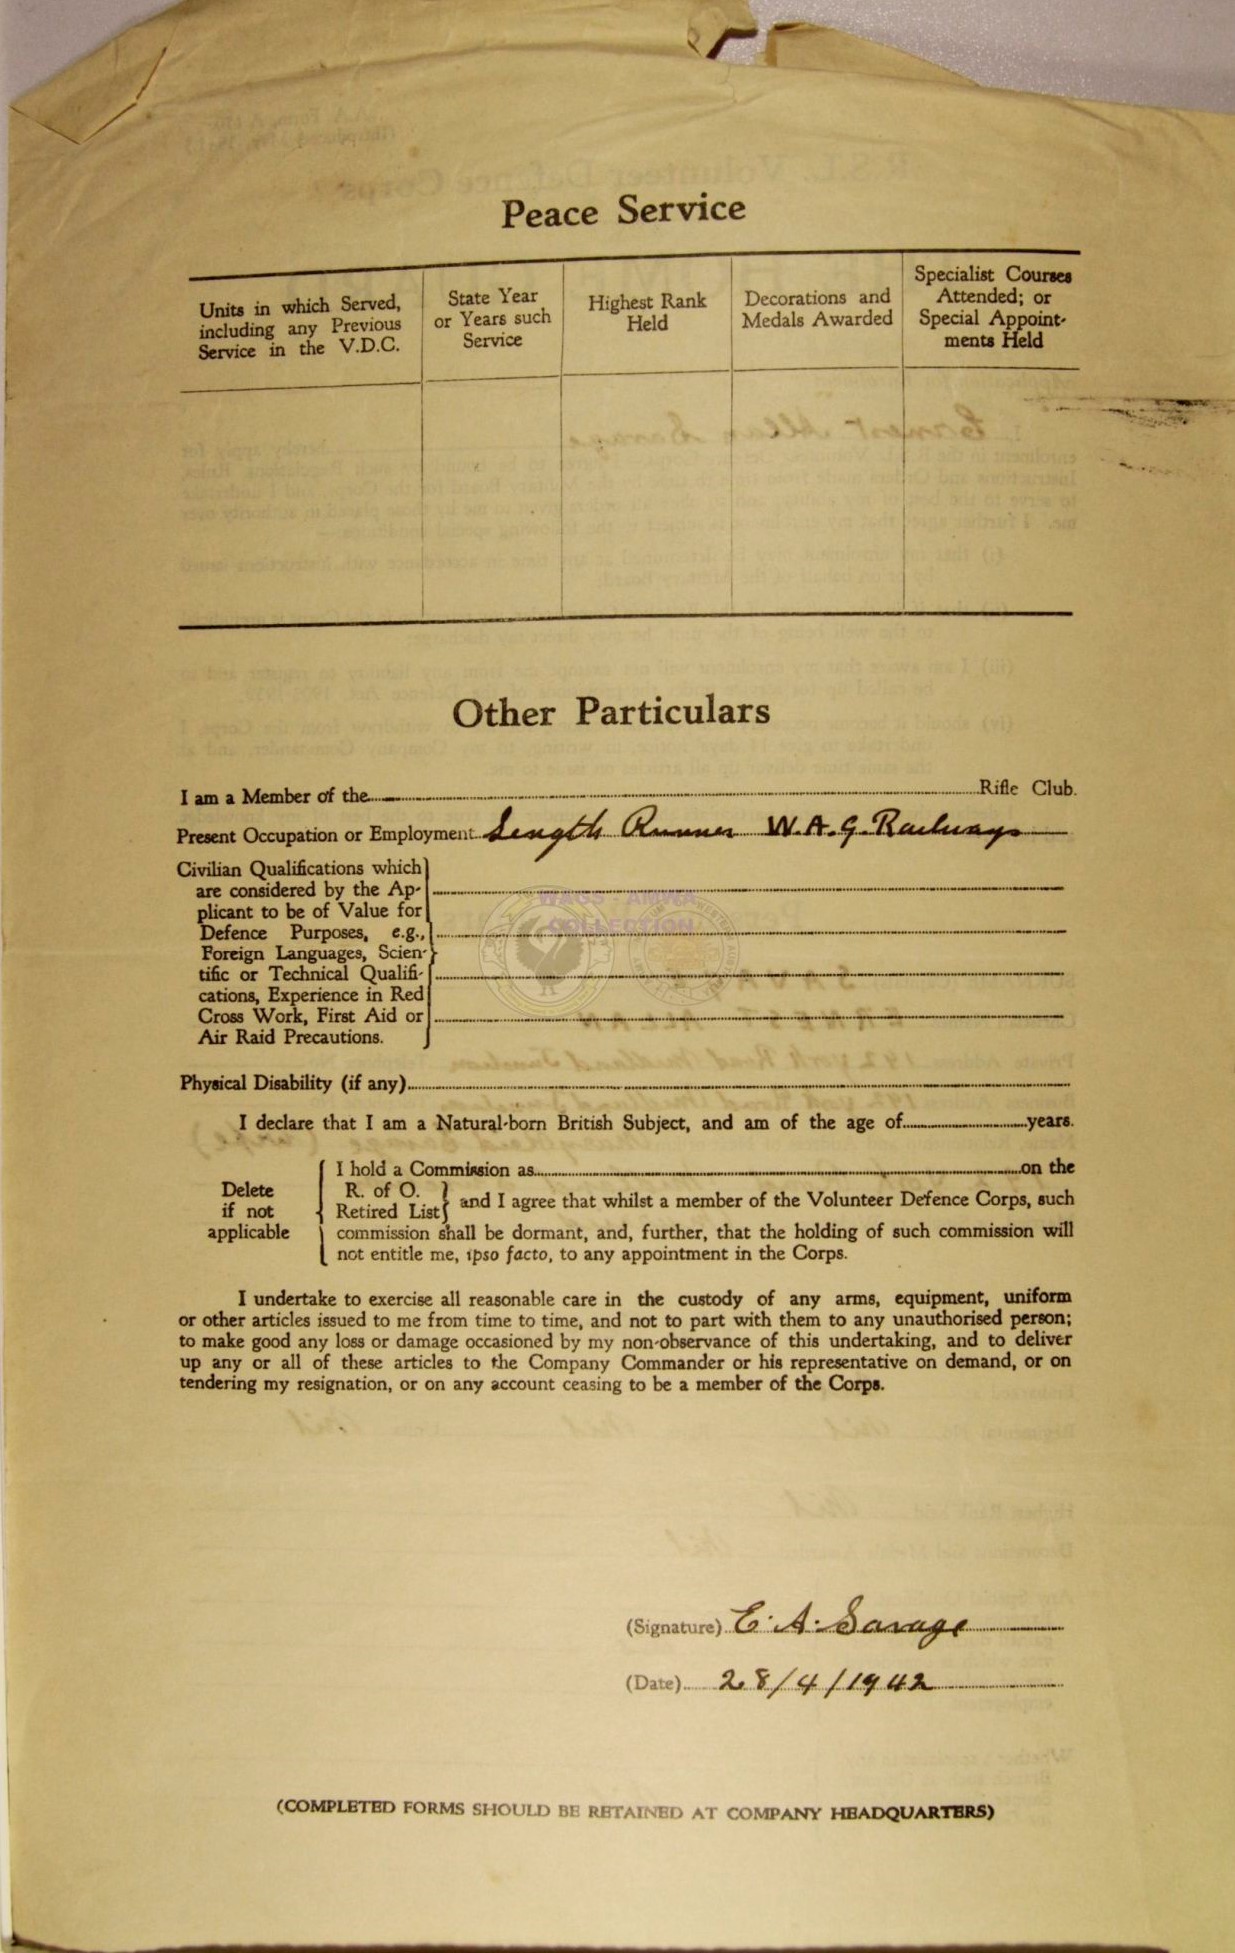 Peace Service
Units in which Served, including any Previous Service in the V.D.C.
State Year or Years such Service
Highest Rank Held
Decorations and Medals Awarded
Specialist Courses Attended; or Special Appoint-ments Held
Other Particulars
I am a Member of the Rifle Club.
Present Occupation or Employment Length Runner W.A.G. Railways
Civilian Qualifications which
are considered by the Ap-
plicant to be of Value for
Defence Purposes, e.g.,
Foreign Languages, Scien-
tific or Technical Qualifi-
cations, Experience in Red
Cross Work, First Aid or
Air Raid Precautions.
WAGS - AMWA
COLLECTION
Physical Disability (if any)
I declare that I am a Natural-born British Subject, and am of the age of years.
Delete
if not
applicable
I hold a Commission as on the
R. of O.
Retired List
and I agree that whilst a member of the Volunteer Defence Corps, such
commission shall be dormant, and, further, that the holding of such commission will
not entitle me, ipso facto, to any appointment in the Corps.
I undertake to exercise all reasonable care in the custody of any arms, equipment, uniform
or other articles issued to me from time to time, and not to part with them to any unauthorised person;
to make good any loss or damage occasioned by my non-observance of this undertaking, and to deliver
up any or all of these articles to the Company Commander or his representative on demand, or on
tendering my resignation, or on any account ceasing to be a member of the Corps.
(Signature) E. A. Savage
(Date) 28/4/1942
(COMPLETED FORMS SHOULD BE RETAINED AT COMPANY HEADQUARTERS)